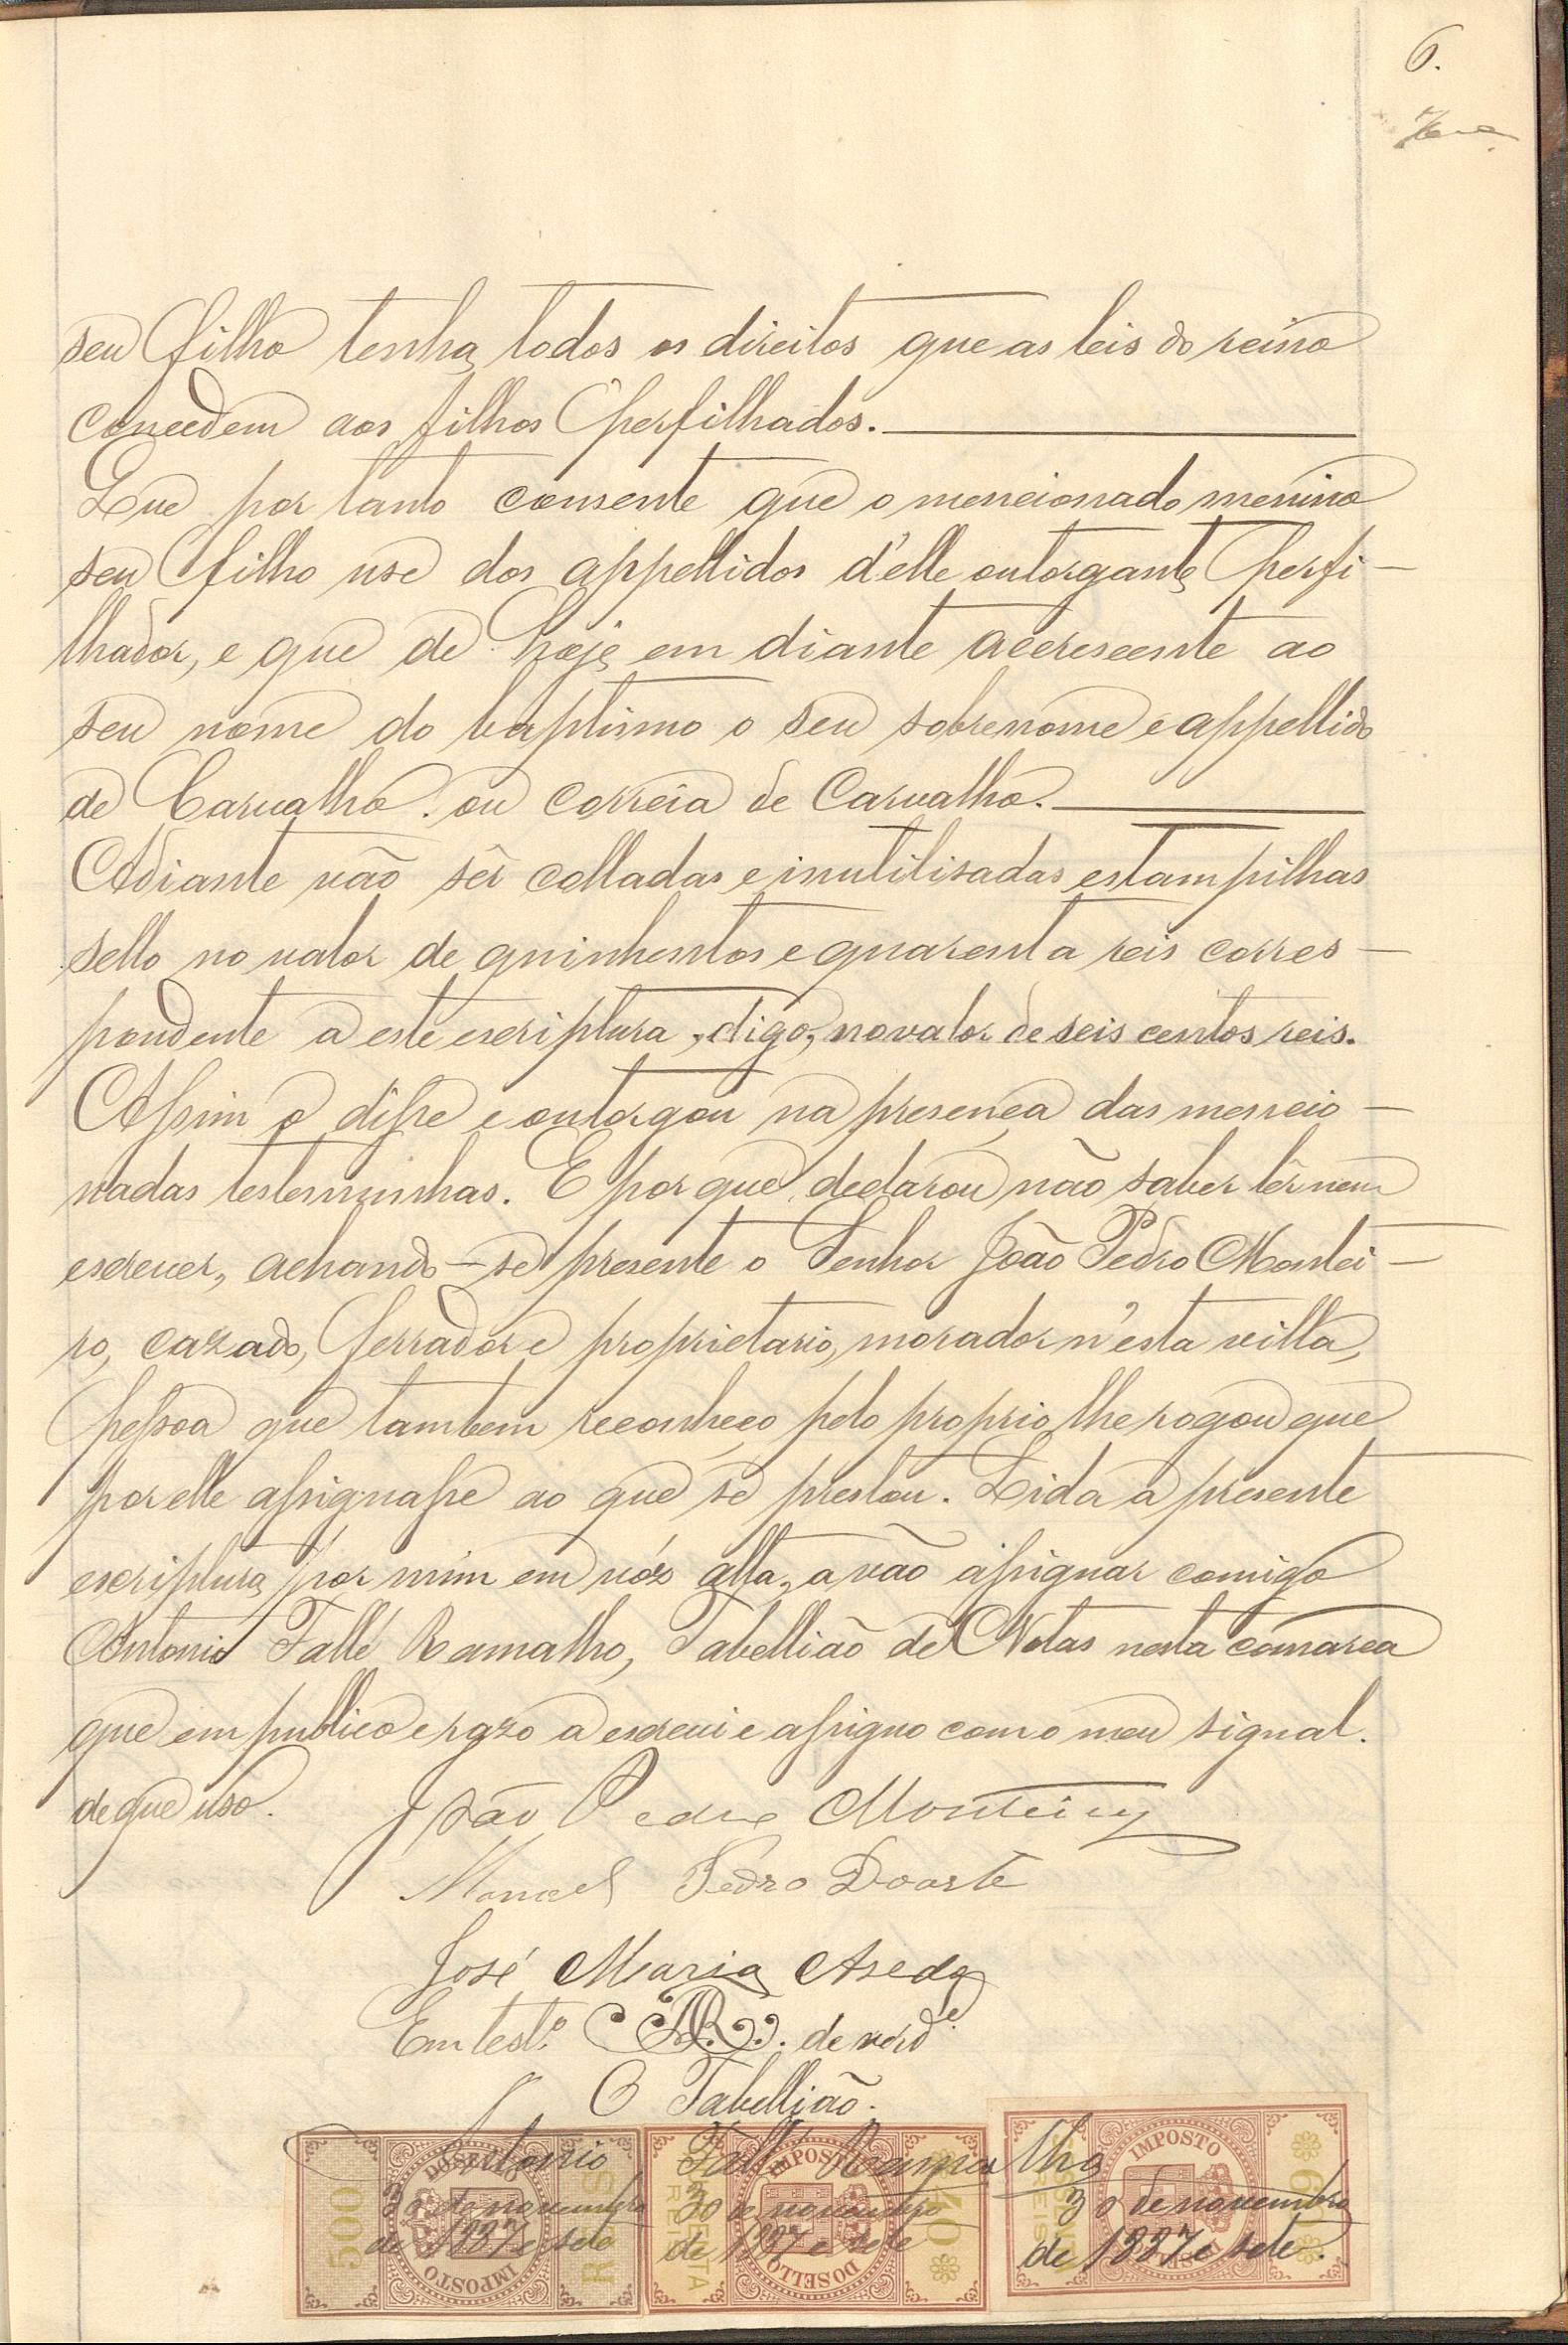 6.
seu filho tenha todos os direitos que as leis do reino
concedem aos filhos perfilhados.
Que por tanto consente que o mencionado menino
seu filho use dos appellidos d'elle outorgante perfi-
lhador, e que de hoje em diante accrescente ao
seu nome do baptismo o seu sobrenome e appellido
de Carvalho. ou Correia de Carvalho.
Adiante vão sêr colladas e inutilisadas estampilhas
sello no valor de quinhentos e quarenta reis corres-
pondente a este escriptura, digo, no valor de seis centos reis.
Assim o disse e outorgou na presença das mencio-
nadas testemunhas. E por que declarou não saber lêr nem
escrever, achando-se presente o Senhor João Pedro Montei-
ro, cazado, ferrador e proprietario, morador n'esta villa,
pessoa que tambem reconheço pelo proprio lhe rogou que
por elle assignasse ao que se prestou. Lida a presente
escriptura por mim em vóz alta, a vão assignar comigo
Antonio Fallé Ramalho, Tabellião de Notas nesta comarca
que em publico e razo a escrevi e assigno com o meu signal.
de que uso. João Pedro Monteiro
Manoel Pedro Doarte
José Maria Aseda
Em test.º AR. de verd.e
O Tabellião.
Antonio Fallé Ramalho
30 de novembro 30 de novembro 30 de novembro
de 1887 e sete de 1887 e sete de 1887 e sete.
500 REIS IMPOSTO DO SELLO
40 QUARENTA REIS IMPOSTO DO SELLO
60 SESSENTA REIS IMPOSTO DO SELLO